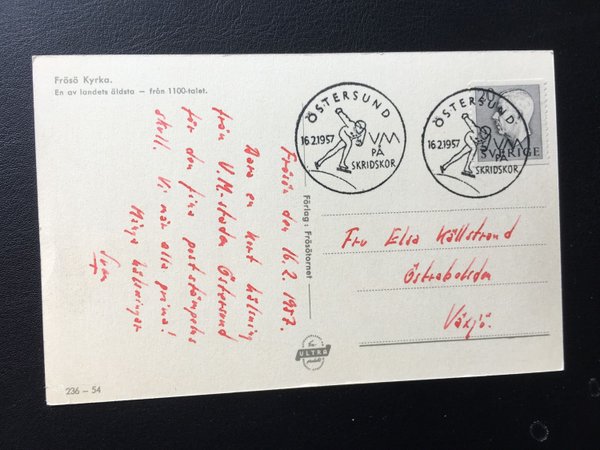 Frösö Kyrka.
En av landets äldsta — från 1100-talet.
Frösön den 16.2. 1957.
Bara en kort hälsning
från V.M-staden Östersund
för den fina poststämpelns
skull. Vi mår alla prima!
Många hälsningar
Sven
236 – 54
Förlag: Frösötornet
ULTRA
ÖSTERSUND
16.2.1957
VM
PÅ
SKRIDSKOR
ÖSTERSUND
16.2.1957
VM
PÅ
SKRIDSKOR
20
SVERIGE
Fru Elsa Källstrand
Östrabolsden
Växjö.